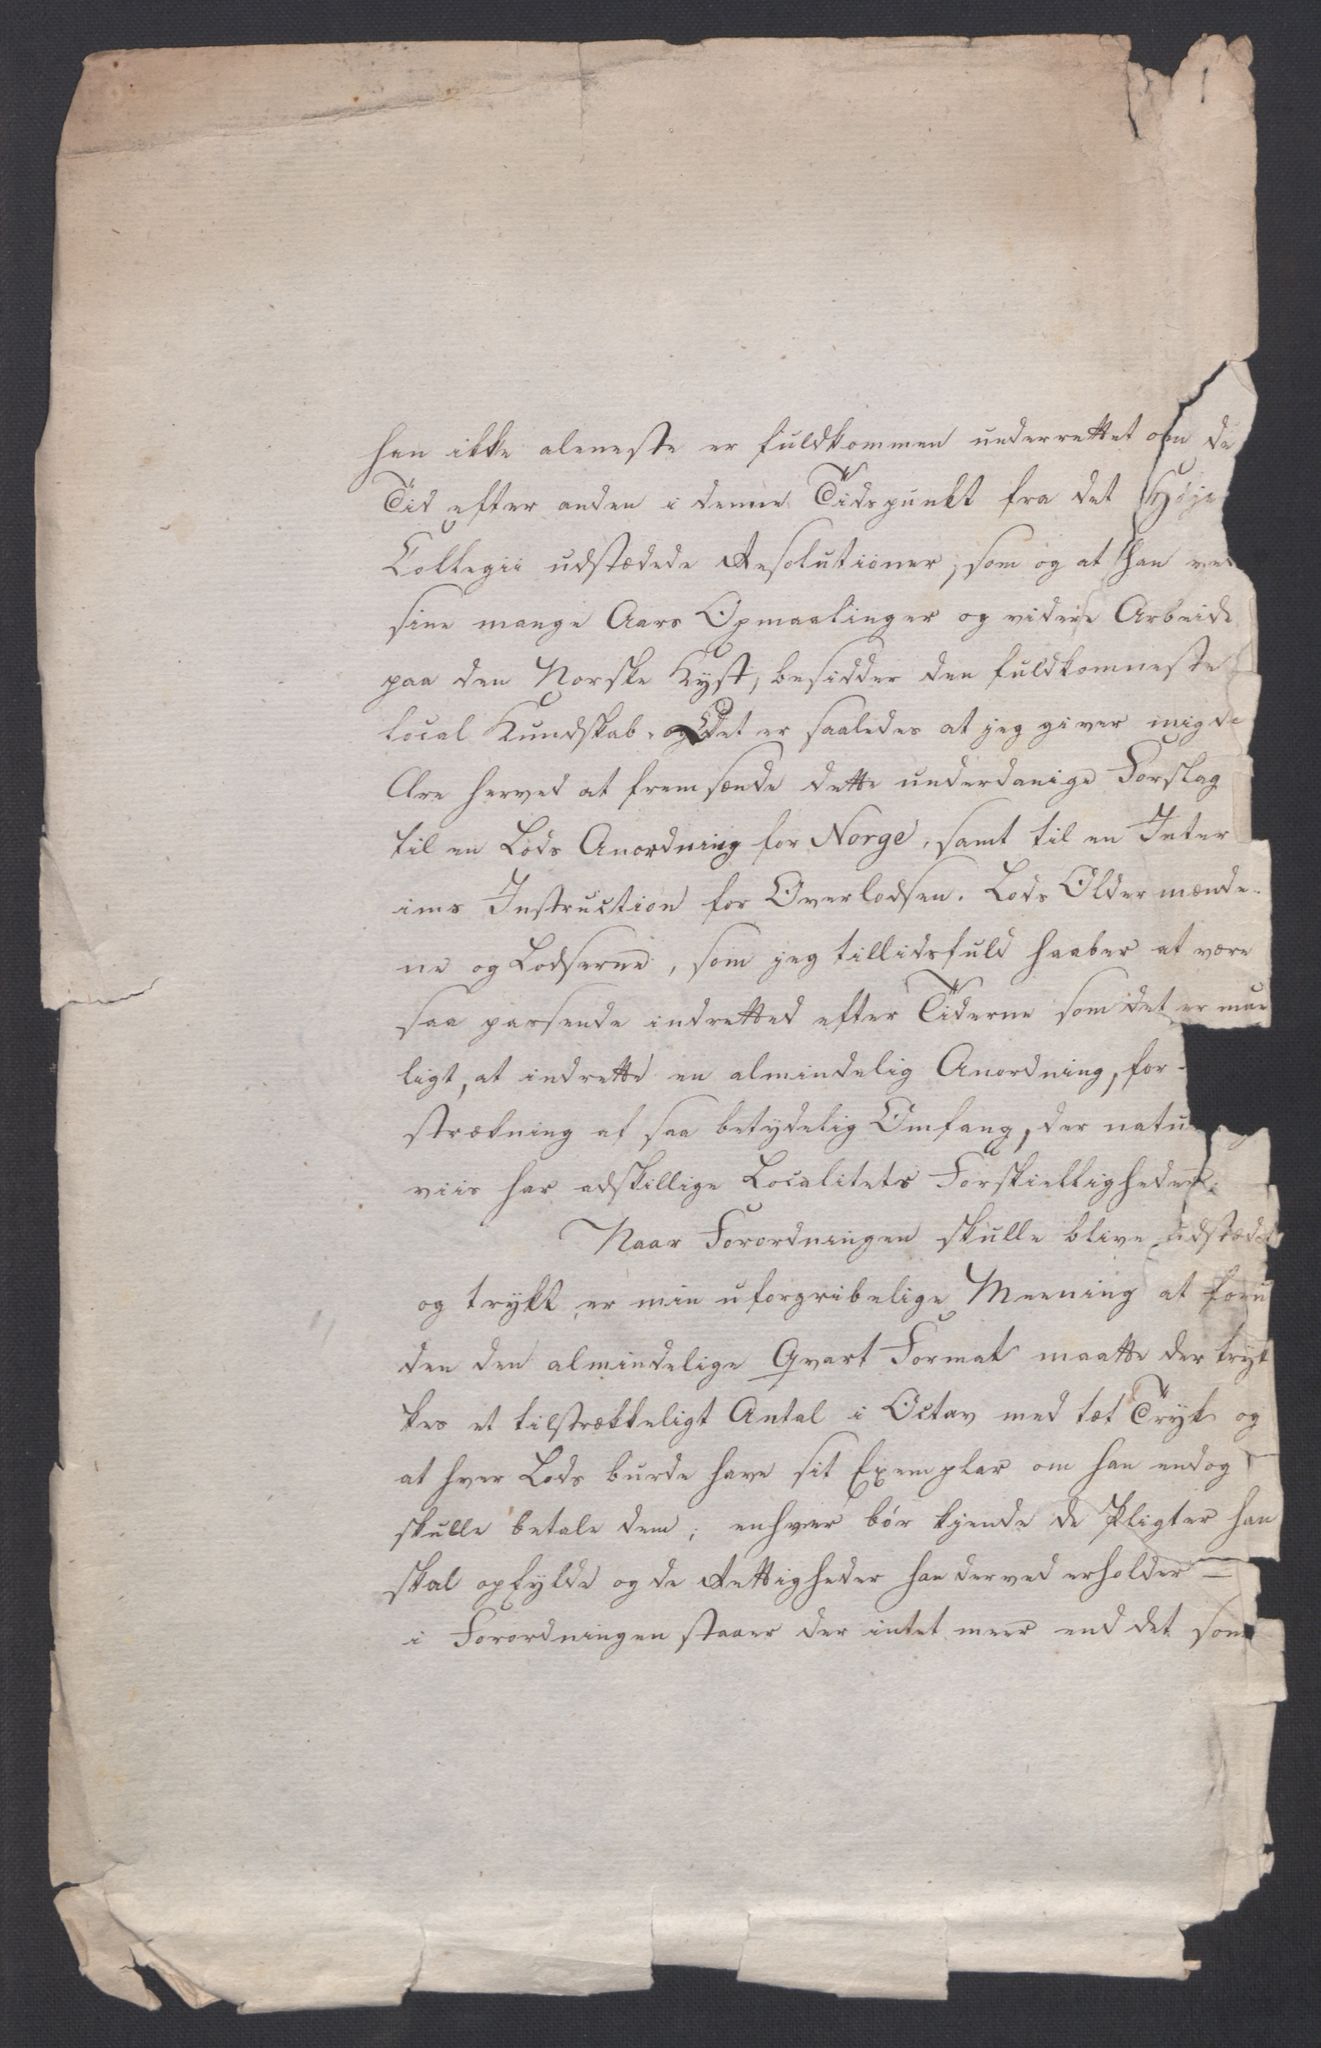 han ikke aleneste er fuldkommen underrettet om de
Tid efter anden i denne Tidspunkt fra det Høje
Collegii udstædede Resolutioner, som og at han ved
sine mange Aars Opmaalinger og videre Arbeide
paa den Norske Kyst, besidder den fuldkomneste
local Kundskab. og Det er saaledes at jeg giver mig de
Ære herved at fremsænde dette underdanige Forslag
til en Lods Anordning for Norge, samt til en Inter
ims Instruction for Overlodsen. Lods Oldermænde-
ne og Lodserne, som jeg tillidsfuld haaber at være
saa passende indretted efter Tiderne som det er mue
ligt, at indrette en almindelig Anordning, for-
strækning af saa betydelig Omfang, der natu
viis har adskillige Localitets Forskielligheder.
Naar Forordningen skulle blive udstæded
og trykt er min uforgribelige Meening at foru
den den almindelige Qvart Format maatte der tryk
kes et tilstrækkeligt Antal i Octav med tæt Tryk og
at hver Lods burde have sit Exemplar om han endog
skulle betale dem; enhver bør kjende de Pligter han
skal opfylde og de Rettigheder han derved erholder —
i Forordningen staaer der intet meer end det som